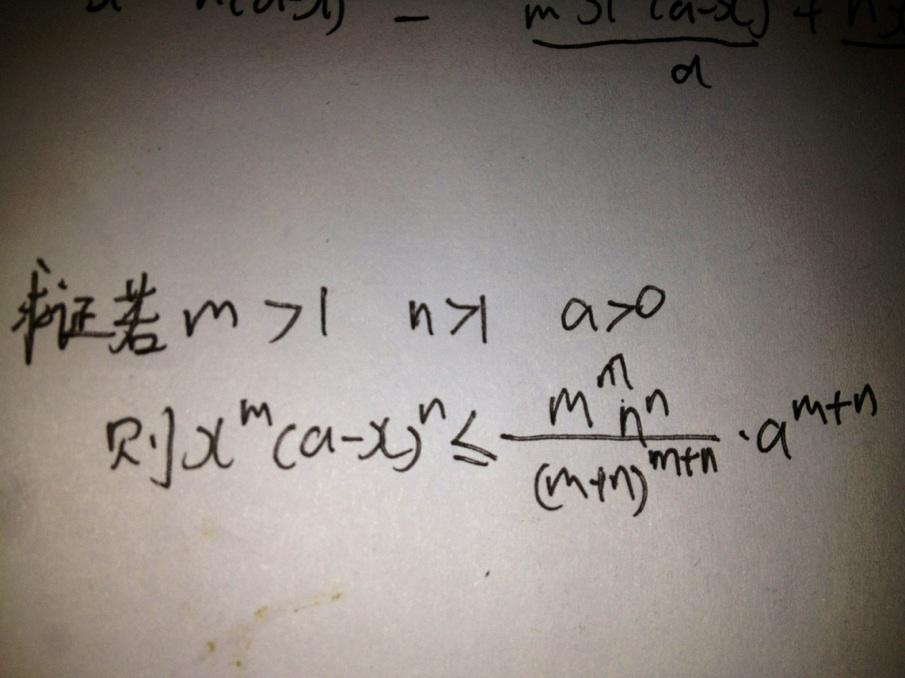 n(a-x) - m x (a-x) + n
a
求证若 m >1 n>1 a>0
则 x^m (a-x)^n ≤ \frac{m^m n^n}{(m+n)^{m+n}} · a^{m+n}